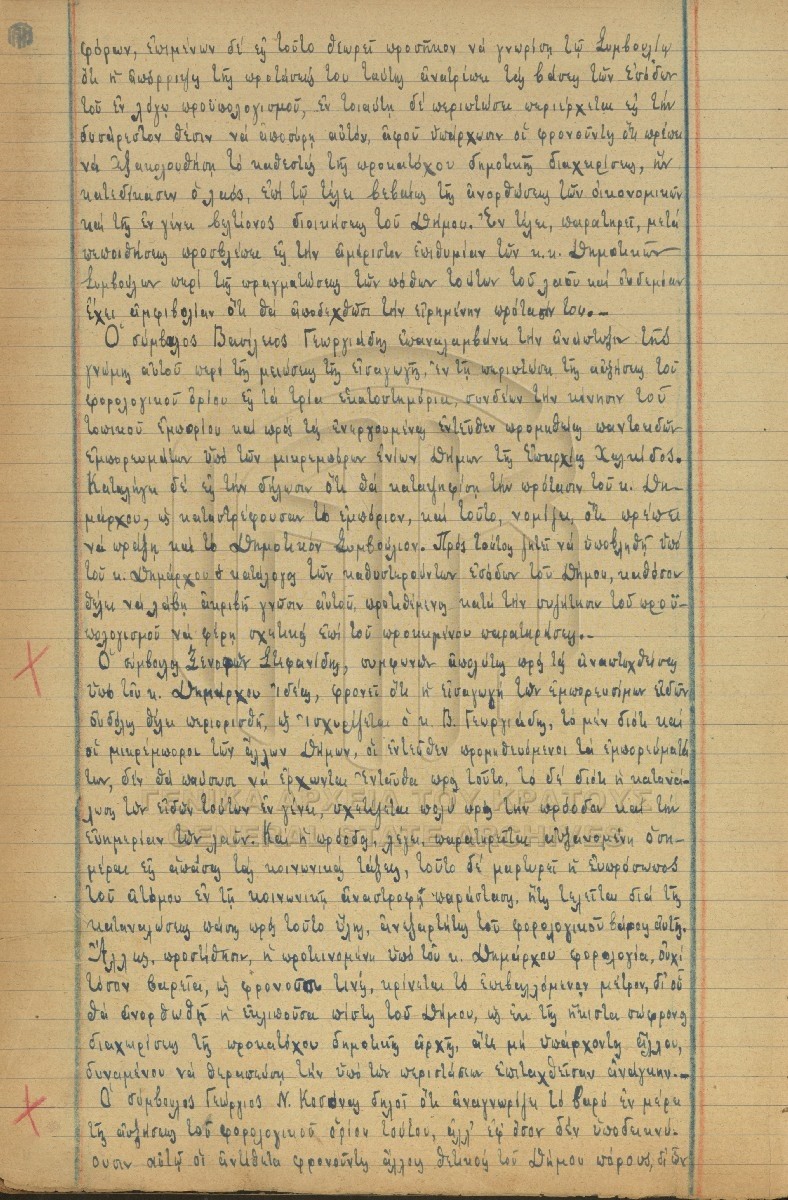 φόρων, ἐπιμένων δέ εἰς τοῦτο θεωρεῖ προσῆκον νά γνωρίσῃ τῷ Συμβουλίῳ
ὅτι ἡ ἀπόρριψις τῆς προτάσεώς του ταύτης ἀνατρέπει τάς βάσεις τῶν ἐσόδων
τοῦ ἐν λόγῳ προϋπολογισμοῦ, ἐν τοιαύτῃ δέ περιπτώσει περιέρχεται εἰς τήν
δυσάρεστον θέσιν νά ἀποσύρῃ αὐτόν, ἀφοῦ ὑπάρχωσιν οἱ φρονοῦντες ὅτι πρέπει
νά ἐξακολουθήσῃ τό καθεστώς τῆς προκατόχου δημοτικῆς διαχειρίσεως, ἥν
κατεδίκασεν ὁ λαός, ἐπί τῷ τέλει βεβαίως τῆς ἀνορθώσεως τῶν οἰκονομικῶν
καί τῆς ἐν γένει βελτίονος διοικήσεως τοῦ Δήμου. Ἐν τέλει, παρατηρεῖ, μετά
πεποιθήσεως προσβλέπει εἰς τήν ἀμέριστον ἐπιθυμίαν τῶν κ.κ. Δημοτικῶν
Συμβούλων περί τῆς πραγματώσεως τῶν πόθων τούτων τοῦ λαοῦ καί οὐδεμίαν
ἔχει ἀμφιβολίαν ὅτι θά ἀποδεχθῶσι τήν εἰρημένην πρότασίν του.-
Ὁ σύμβουλος Βασίλειος Γεωργιάδης ἐπαναλαμβάνει τήν ἀνάπτυξιν τῆς
γνώμης αὐτοῦ περί τῆς μειώσεως τῆς εἰσαγωγῆς, ἐν τῇ περιπτώσει τῆς αὐξήσεως τοῦ
φορολογικοῦ ὁρίου εἰς τά τρία ἑκατοστημόρια, συνδέων τήν κίνησιν τοῦ
τοπικοῦ ἐμπορίου καί πρός τάς ἐνεργουμένας ἐντεῦθεν προμηθείας παντοειδῶν
ἐμπορευμάτων ὑπό τῶν μικρεμπόρων ἐνίων Δήμων τῆς Ἐπαρχίας Χαλκίδος.
Καταλήγει δέ εἰς τήν δήλωσιν ὅτι θά καταψηφίσῃ τήν πρότασιν τοῦ κ. Δη-
μάρχου, ὡς καταστρέφουσαν τό ἐμπόριον, καί τοῦτο, νομίζει, ὅτι πρέπει
νά πράξῃ καί τό Δημοτικόν Συμβούλιον. Πρός τούτοις ζητεῖ νά ὑποβληθῇ ὑπό
τοῦ κ. Δημάρχου κατάλογος τῶν καθυστερούντων ἐσόδων τοῦ Δήμου, καθόσον
θέλει νά λάβῃ ἀκριβῆ γνῶσιν αὐτοῦ, προτιθέμενος κατά τήν συζήτησιν τοῦ προϋ-
πολογισμοῦ νά φέρῃ σχετικάς ἐπί τοῦ προκειμένου παρατηρήσεις.-
Ὁ σύμβουλος Ξενοφῶν Στεφανίδης, συμφωνῶν ἀπολύτως πρός τάς ἀναπτυχθείσας
ὑπό τοῦ κ. Δημάρχου ἰδέας, φρονεῖ ὅτι ἡ εἰσαγωγή τῶν ἐμπορευσίμων εἰδῶν
οὐδόλως θέλει περιορισθῆ, ὡς ἰσχυρίζεται ὁ κ. Β. Γεωργιάδης, τό μέν διότι καί
οἱ μικρέμποροι τῶν ἄλλων Δήμων, οἱ ἐντεῦθεν προμηθευόμενοι τά ἐμπορεύματά
των, δέν θά παύσωσι νά ἔρχωνται ἐνταῦθα πρός τοῦτο, τό δέ διότι ἡ κατανά-
λωσις τῶν εἰδῶν τούτων ἐν γένει, σχετίζεται πολύ πρός τήν πρόοδον καί τήν
εὐημερίαν τῶν λαῶν. Καί ἡ πρόοδος, λέγει, παρατηρεῖται αὐξανομένη ὁση-
μέραι εἰς ἁπάσας τάς κοινωνικάς τάξεις, τοῦτο δέ μαρτυρεῖ ἡ εὐπρόσωπος
τοῦ ἀτόμου ἐν τῇ κοινωνικῇ ἀναστροφῇ παράστασις, ἥτις τελεῖται διά τῆς
καταναλώσεως πάσης πρός τοῦτο ὕλης, ἀνεξαρτήτως τοῦ φορολογικοῦ βάρους αὐτῆς.
Ἄλλως, προσέθησεν, ἡ προτεινομένη ὑπό τοῦ κ. Δημάρχου φορολογία, οὐχί
τόσον βαρεῖα, ὡς φρονοῦσι τινές, κρίνεται τό ἐπιβαλλόμενον μέτρον, δι' οὗ
θά ἀνορθωθῇ ἡ ἐκλιποῦσα πίστις τοῦ Δήμου, ὡς ἐκ τῆς ἥκιστα σώφρονος
διαχειρίσεως τῆς προκατόχου δημοτικῆς ἀρχῆς, ἅτε μή ὑπάρχοντος ἄλλου,
δυναμένου νά θεραπεύσῃ τήν ὑπό τῶν περιστάσεων ἐπιταχθεῖσαν ἀνάγκην.-
Ὁ σύμβουλος Γεώργιος Ν. δηλοῖ ὅτι ἀναγνωρίζει τό βαρύ ἐν μέρει
τῆς αὐξήσεως τοῦ φορολογικοῦ ὁρίου τούτου, ἀλλ' ἐφ' ὅσον δέν ὑποδεικνύ-
ουσιν αὐτῷ οἱ ἀντίθετα φρονοῦντες ἄλλους θετικούς τοῦ Δήμου πόρους, δι' ὧν
ΓΕΝΙΚΑ ΑΡΧΕΙΑ ΤΟΥ ΚΡΑΤΟΥΣ